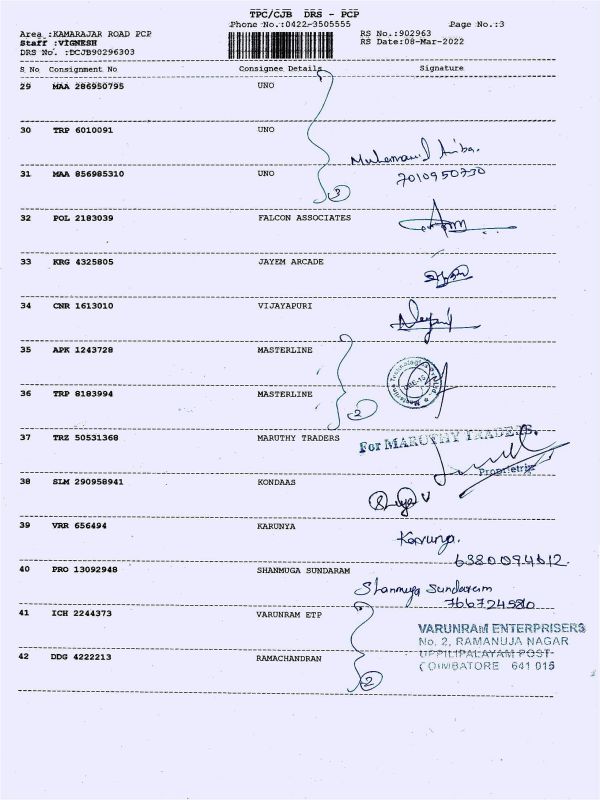 TPC/CJB DRS - PCP
Phone No.:0422-3505555 Page No.:3
Area :KAMARAJAR ROAD PCP RS No.:902963
Staff :VIGNESH RS Date:08-Mar-2022
DRS No. :DCJB90296303
S No Consignment No Consignee Details Signature
29 MAA 286950795 UNO
30 TRP 6010091 UNO
31 MAA 856985310 UNO
7010950730
3
32 POL 2183039 FALCON ASSOCIATES
33 KRG 4325805 JAYEM ARCADE
34 CNR 1613010 VIJAYAPURI
35 APK 1243728 MASTERLINE
36 TRP 8183994 MASTERLINE
2
37 TRZ 50531368 MARUTHY TRADERS For MARUTHY TRADERS.
Proprietrix
38 SLM 290958941 KONDAAS
39 VRR 656494 KARUNYA
6380094612.
40 PRO 13092948 SHANMUGA SUNDARAM
Shanmuga Sundaram
41 ICH 2244373 VARUNRAM ETP
VARUNRAM ENTERPRISERS
No. 2, RAMANUJA NAGAR
UPPILIPALAYAM POST
COIMBATORE 641 015
42 DDG 4222213 RAMACHANDRAN
2